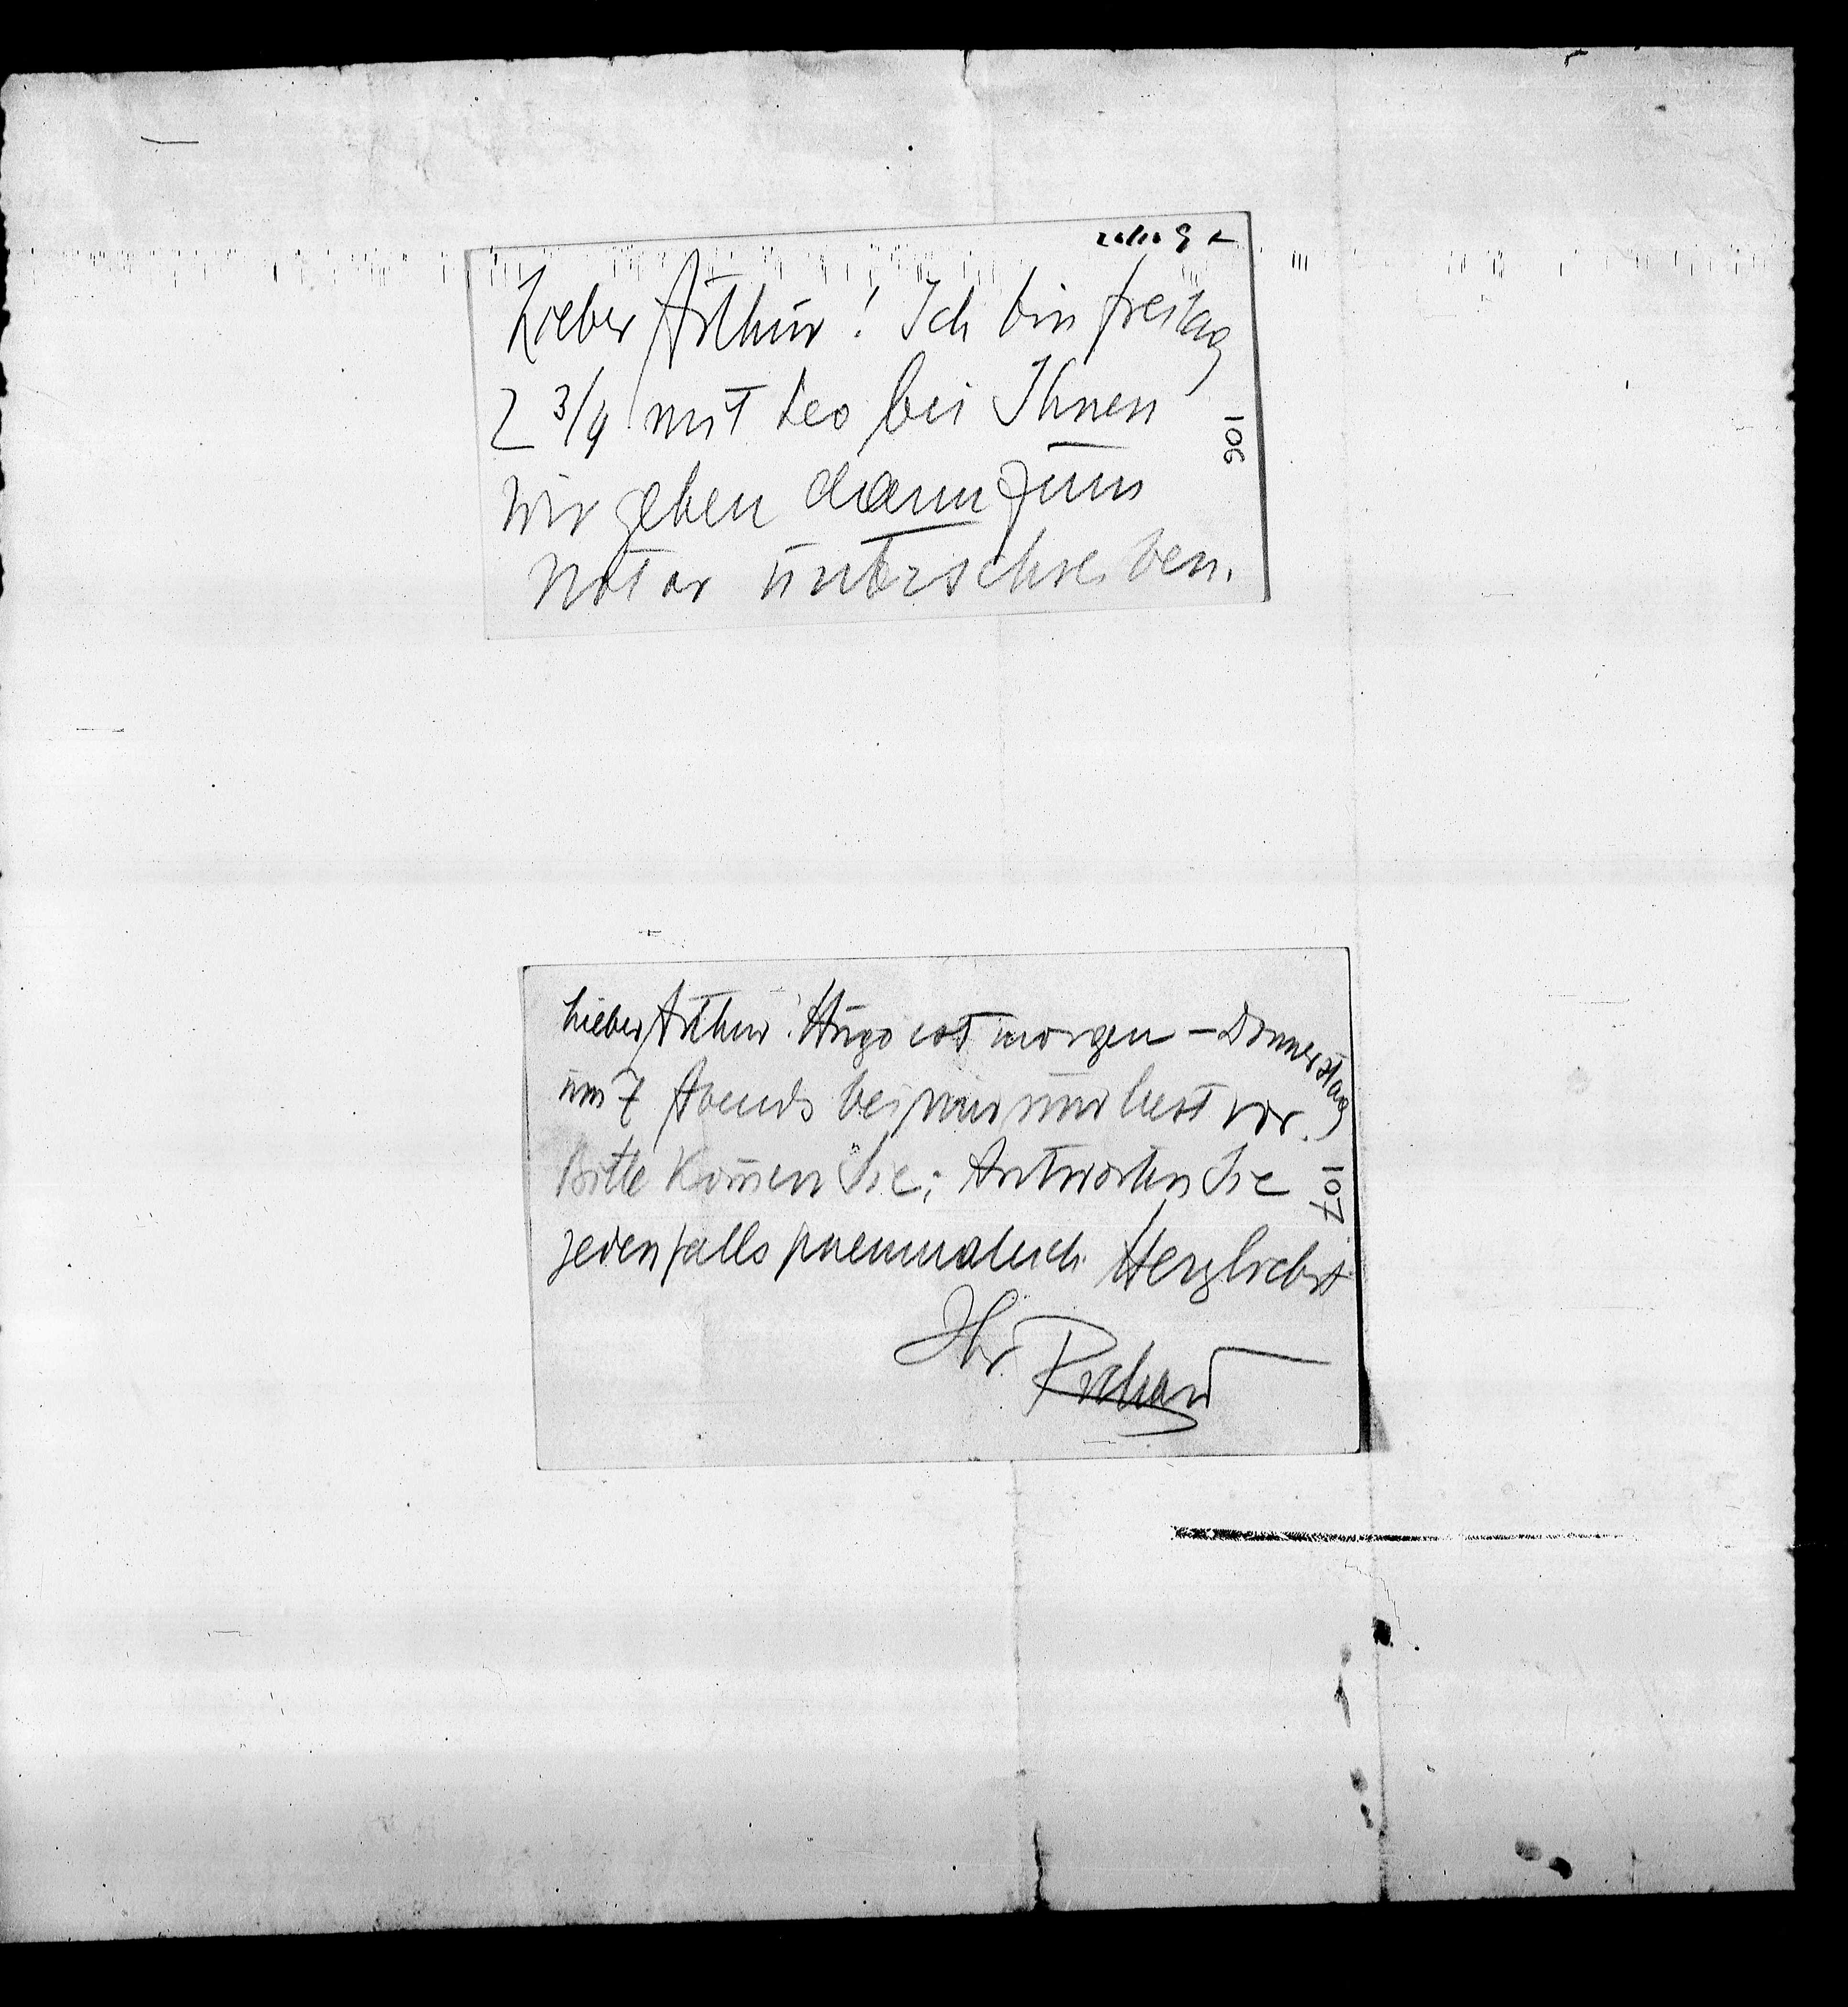 Lieber Arthur! Ich bin freitag
2 3/4 mit Leo bei Ihnen
106
wir gehen dann zum
Notar unterschreiben.
Lieber Arthur! Hugo ist morgen – Donnerstag
um 7 Abends bei mir und liest vor.
Bitte kom̄en Sie; Antworten Sie
107
jedenfalls pneumatisch. Herzlichst
Ihr Richard